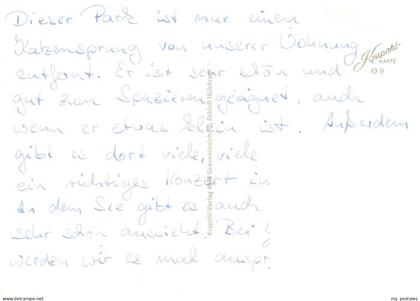 Dieser Park ist nur einen
Katzensprung von unserer Wohnung
entfernt. Er ist sehr schön und
gut zum Spazieren geeignet, auch
wenn er etwas klein ist. Außerdem
gibt es dort viele, viele
ein richtiges Konzert in
An dem See gibt es auch
sehr schön aussieht. Bei
werden wir es mal
Krapohl-
KARTE
09
Krapohl-Verlag 4048 Grevenbroich 12, Schloß Hülchrath
www.delcampe.net
my postcards